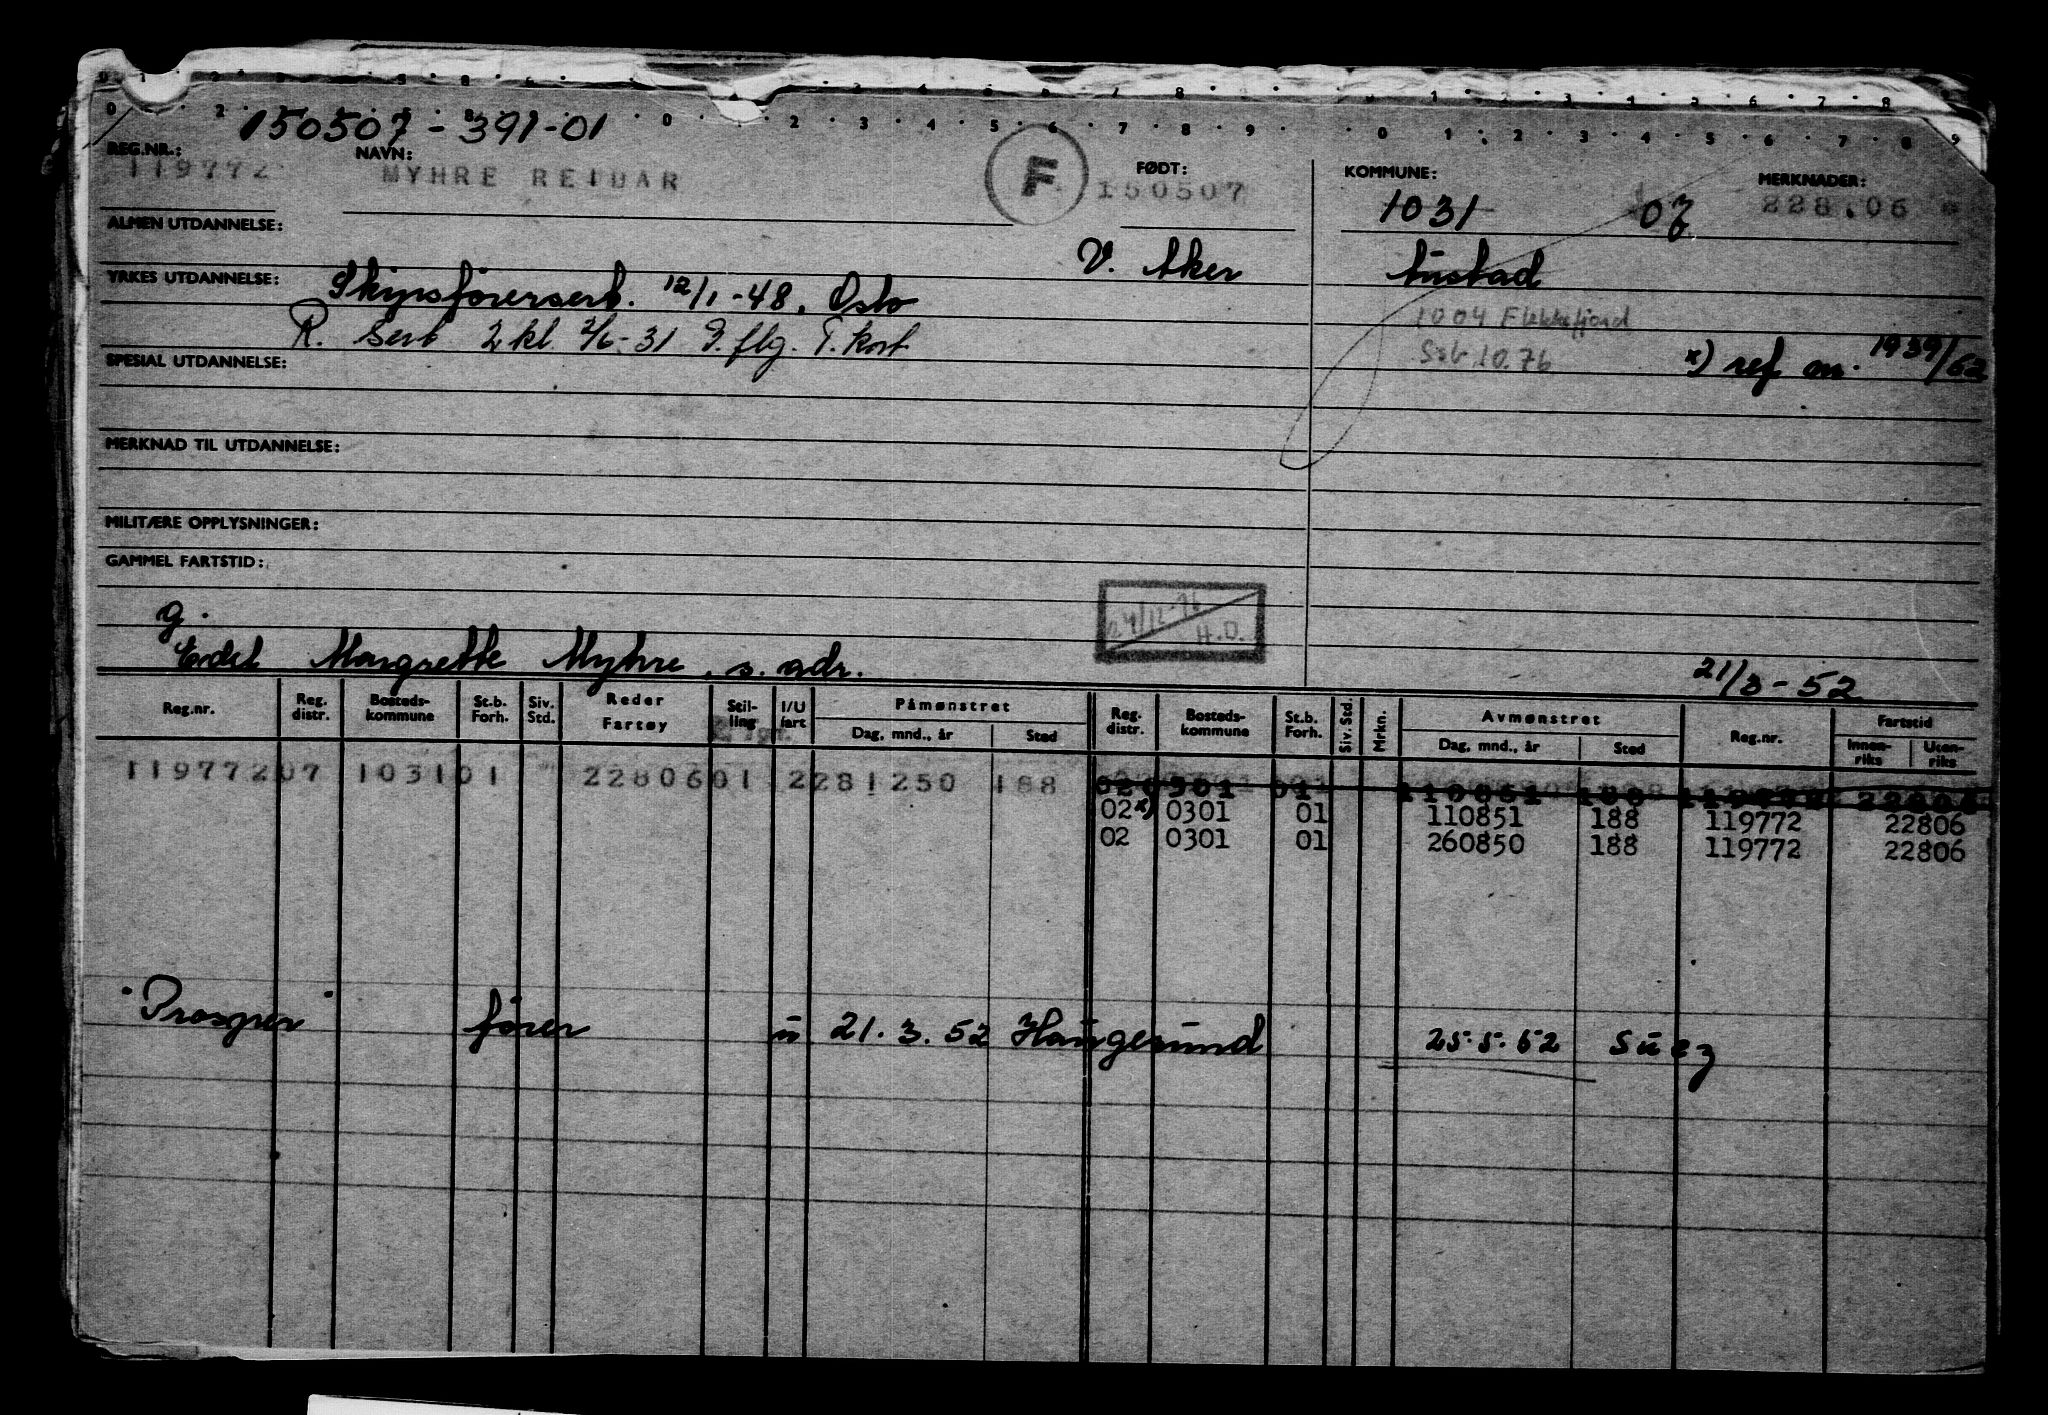 150507-391-01
REG.NR.: NAVN: FØDT: KOMMUNE: MERKNADER:
119772 MYHRE REIDAR F 150507 1031 07 228.06
ALMEN UTDANNELSE:
V. Aker Austad
YRKES UTDANNELSE: Skipsførersert. 12/1-48. Oslo
1004 Flekkefjord
R. Sert 2 kl 2/6-31 G. flg. T. kort
Ssb 10.76 x) ref nr. 1939/62
SPESIAL UTDANNELSE:
MERKNAD TIL UTDANNELSE:
MILITÆRE OPPLYSNINGER:
GAMMEL FARTSTID:
g. 24/12-76
H.O.
Edel Margrethe Myhre, s. adr. 21/3-52
Reg.nr. Reg. distr. Bosteds-kommune St.b. Forh. Siv. Std. Reder Fartøy Stil-ling I/U fart Påmønstret Dag, mnd., år Sted Reg. distr. Bosteds-kommune St.b. Forh. Siv. Std. Mrkn. Avmønstret Dag, mnd., år Sted Reg.nr. Fartstid Innen-riks Uten-riks
119772 07 1031 01 22806 01 2 281250 188
02 x) 0301 01 110851 188 119772 22806
02 0301 01 260850 188 119772 22806
"Prosper" fører u 21.3.52 Haugesund 25.5.52 Suez